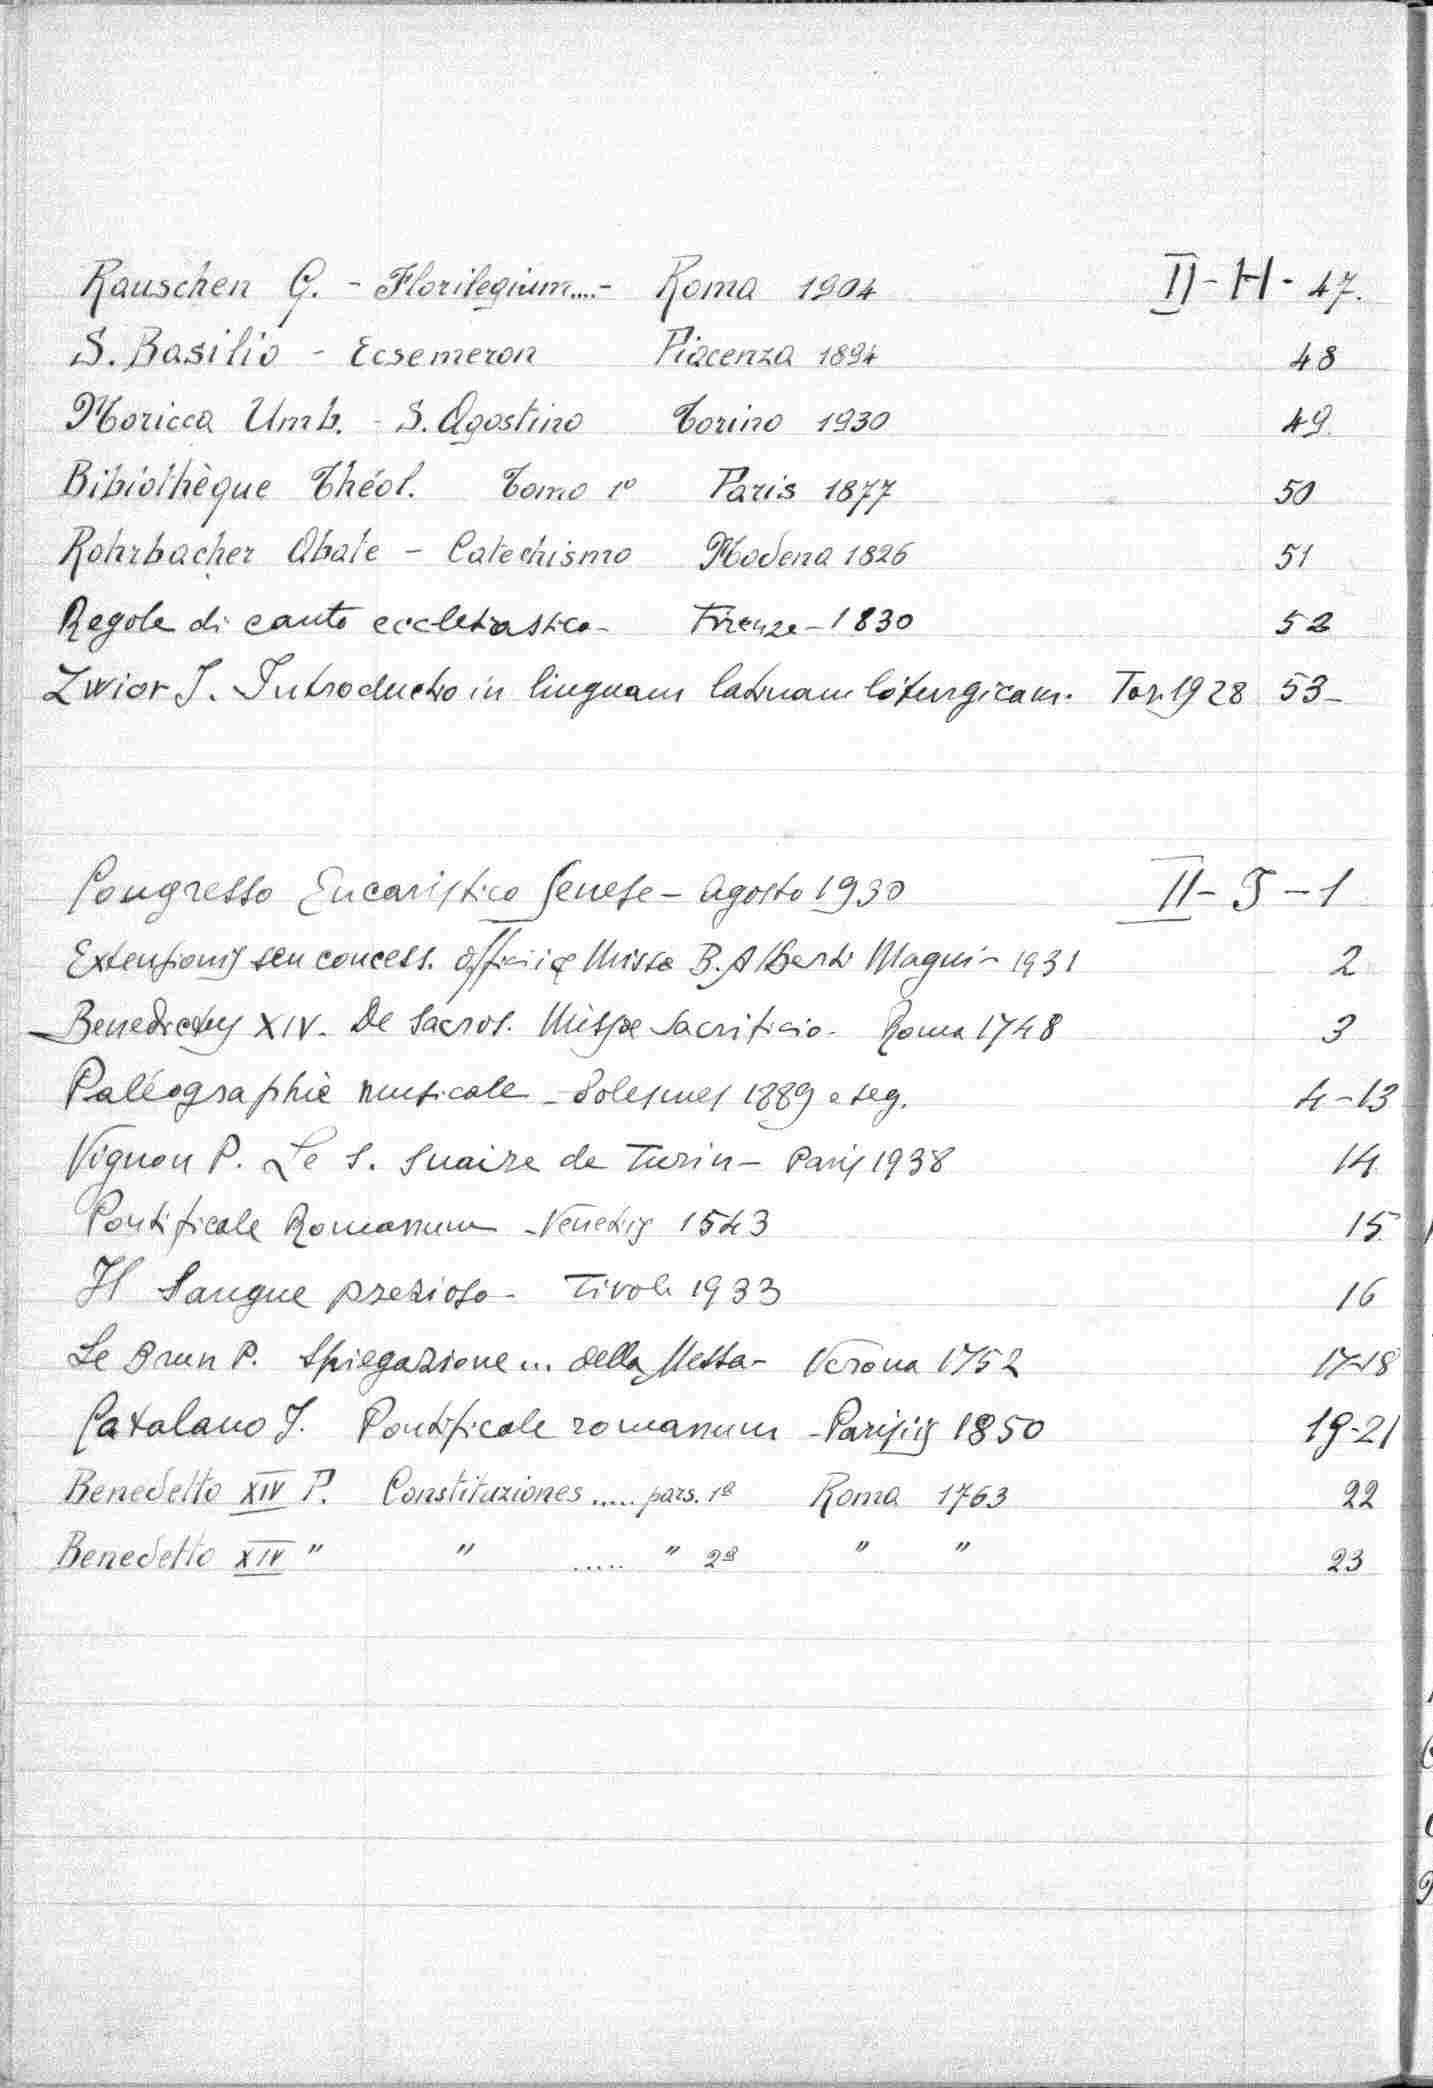 Rauschen G. - Florilegium....- Roma 1904 II - H - 47.
S. Basilio - Ecsemeron Piacenza 1894 48
Moricca Umb. - S. Agostino Torino 1930 49
Bibiothèque Théol. Tomo 1º Paris 1877 50
Rohrbacher Abate - Catechismo Modena 1826 51
Regole di canto ecclesiastico - Firenze - 1830 52
Zwior J. Introductio in linguam latinam liturgicam. Tor. 1928 53-
Congresso Eucaristico Senese - Agosto 1930 II - I - 1
Extensionis seu concess. officii & Missae B. Alberti Magni - 1931 2
Benedictus XIV. De Sacros. Missae Sacrificio - Roma 1748 3
Paléographie musicale - Solesmes 1889 e seg. 4-13
Vignon P. Le S. Suaire de Turin - Paris 1938 14
Pontificale Romanum - Venetiis 1543 15
Il Sangue prezioso - Tivoli 1933 16
Le Brun P. Spiegazione ... della Messa - Verona 1752 17-18
Catalano J. Pontificale romanum - Parisiis 1850 19-21
Benedetto XIV P. Constituziones ..... pars. 1ª Roma 1763 22
Benedetto XIV " " ..... " 2ª " " 23